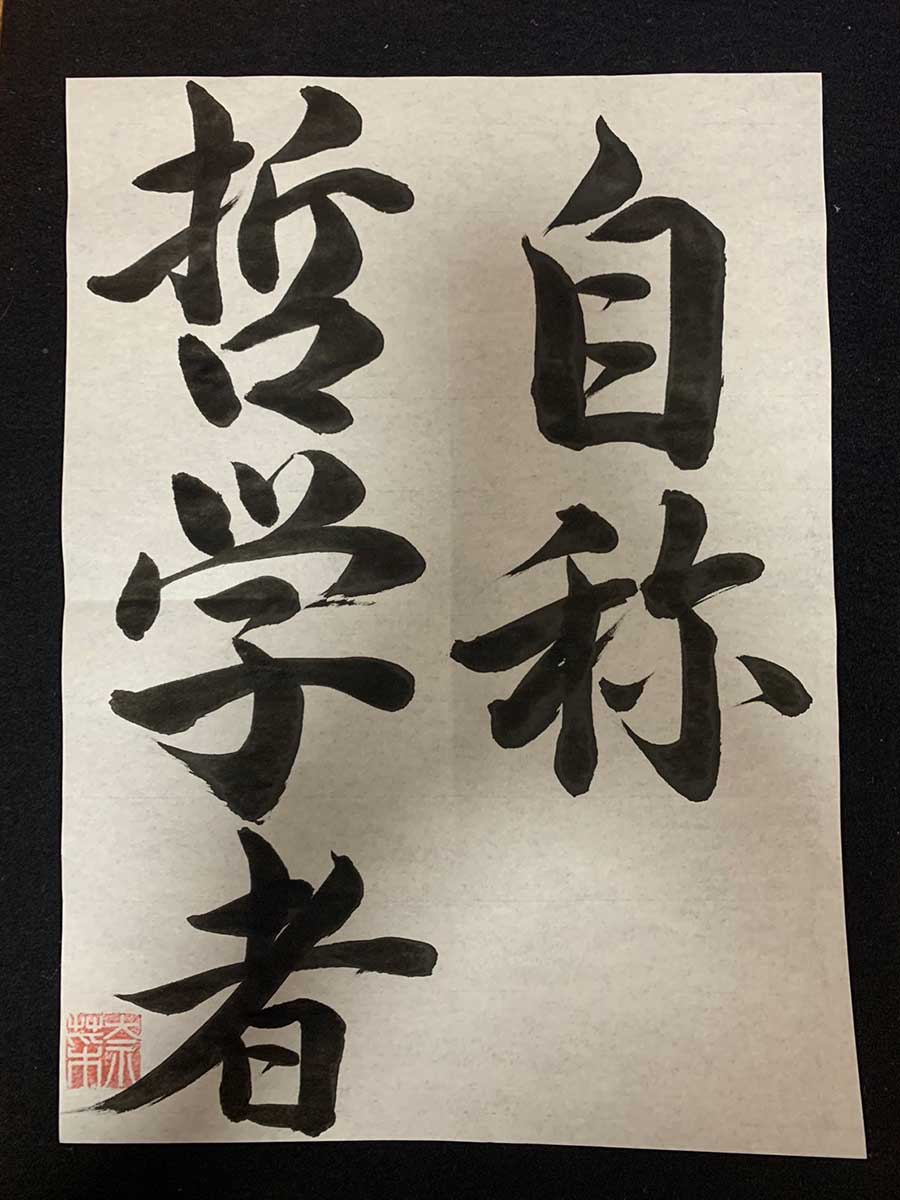 自称
哲学者